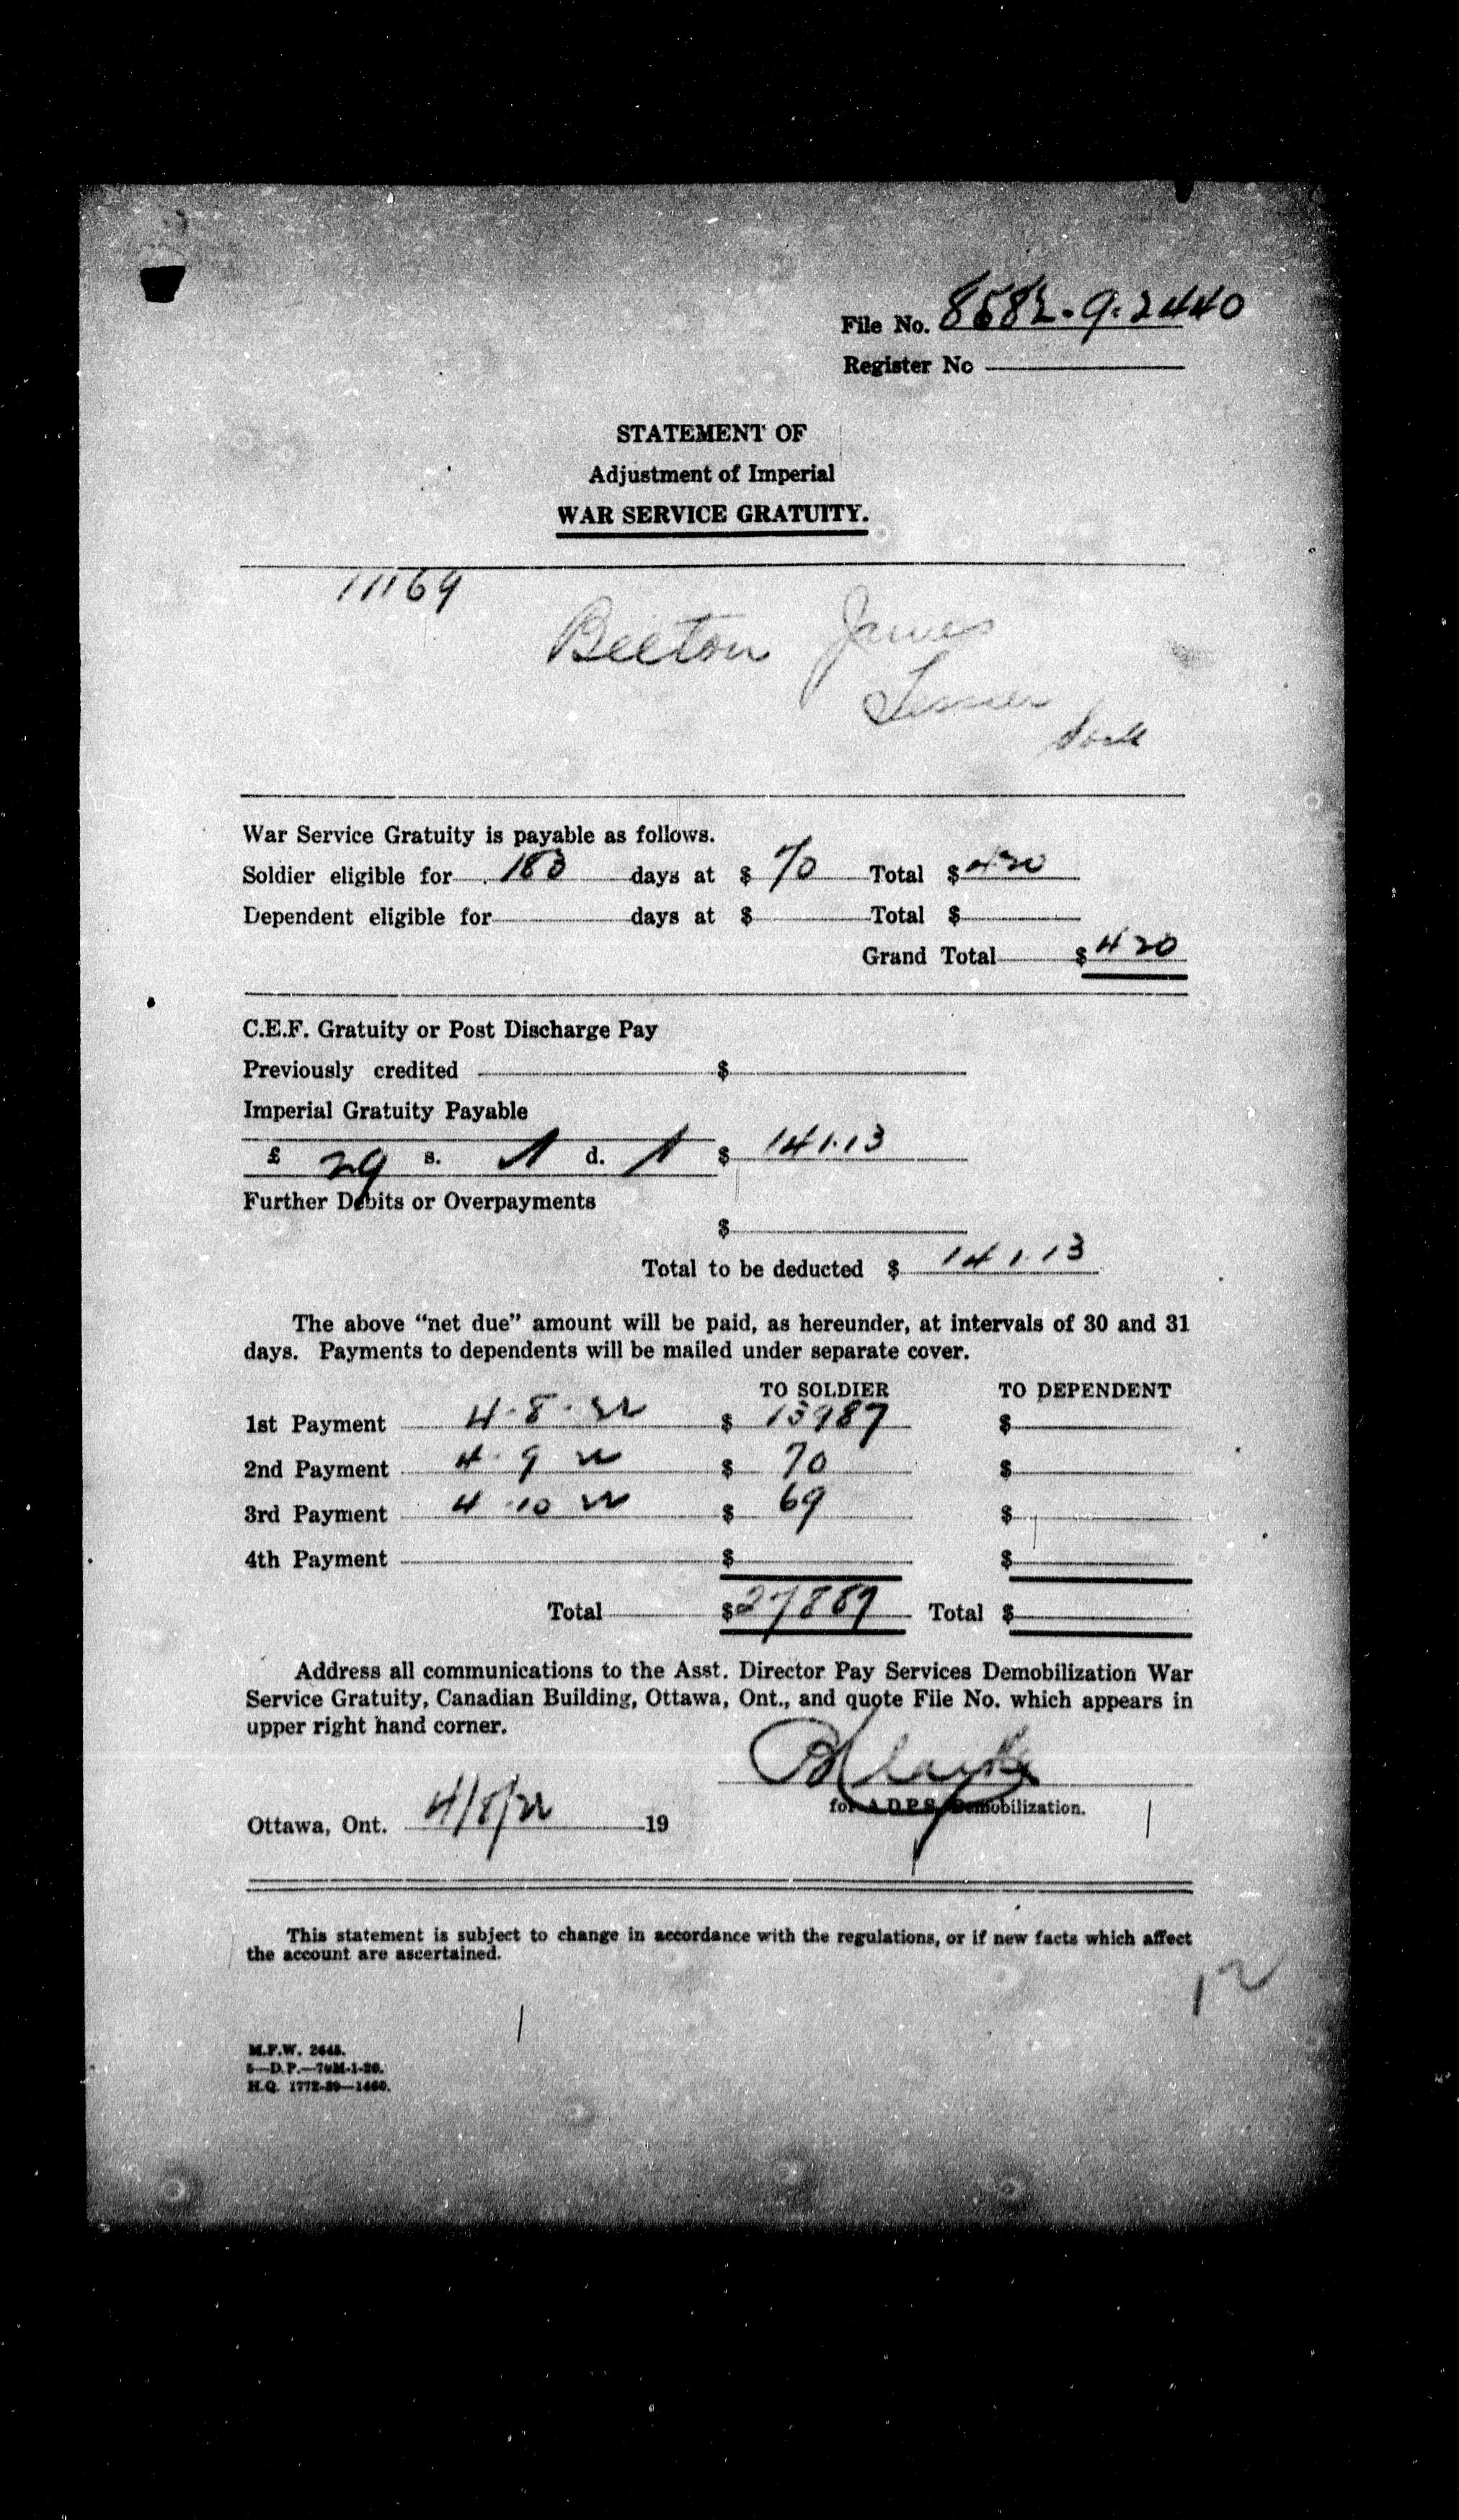 File No. 8582-9-2440
Register No
STATEMENT OF
Adjustment of Imperial
WAR SERVICE GRATUITY.
11169
Beeton James
Sask
War Service Gratuity is payable as follows.
Soldier eligible for 183 days at $ 70 Total $ 420
Dependent eligible for days at $ Total $
Grand Total $ 420
C.E.F. Gratuity or Post Discharge Pay
Previously credited $
Imperial Gratuity Payable
£ 29 s. 1 d. 1 $ 141.13
Further Debits or Overpayments
$
Total to be deducted $ 141.13
The above "net due" amount will be paid, as hereunder, at intervals of 30 and 31
days. Payments to dependents will be mailed under separate cover.
TO SOLDIER TO DEPENDENT
1st Payment 4-8-22 $ 13987 $
2nd Payment 4 9 22 $ 70 $
3rd Payment 4 10 22 $ 69 $
4th Payment $ $
Total $ 27887 Total $
Address all communications to the Asst. Director Pay Services Demobilization War
Service Gratuity, Canadian Building, Ottawa, Ont., and quote File No. which appears in
upper right hand corner.
for A.D.P.S. Demobilization.
Ottawa, Ont. 4/8/22 19
This statement is subject to change in accordance with the regulations, or if new facts which affect
the account are ascertained.
12
M.F.W. 2645.
5—D.P.—70M-1-20.
H.Q. 1772-39—1460.